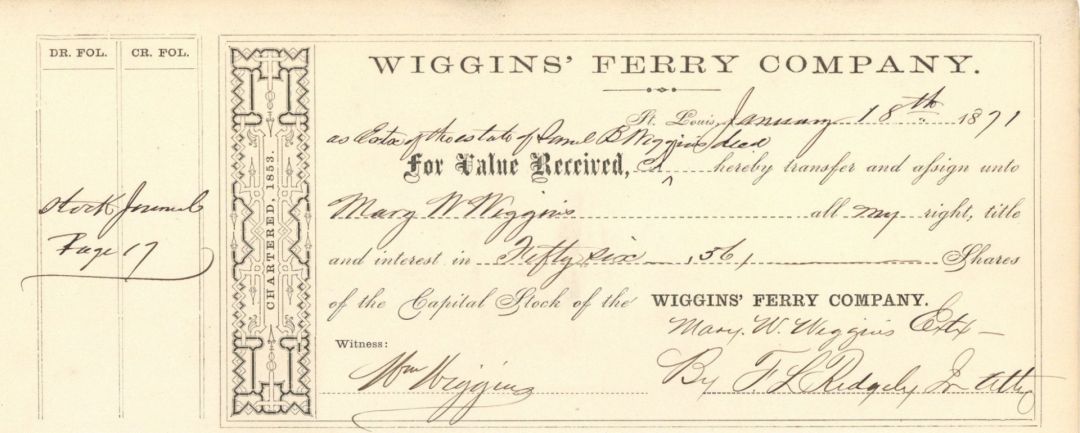 DR. FOL. CR. FOL.
Stock Journal
Page 17
CHARTERED, 1853.
WIGGINS' FERRY COMPANY.
St. Louis, January 18th 1871
as Extx of the estate of Saml B Wiggins decd
For Value Received, I hereby transfer and assign unto
Mary W Wiggins all my right, title
and interest in Fifty six (56) Shares
of the Capital Stock of the WIGGINS' FERRY COMPANY.
Mary. W. Wiggins Extx
Witness:
Wm Wiggins
By F L Ridgely Jr Atty